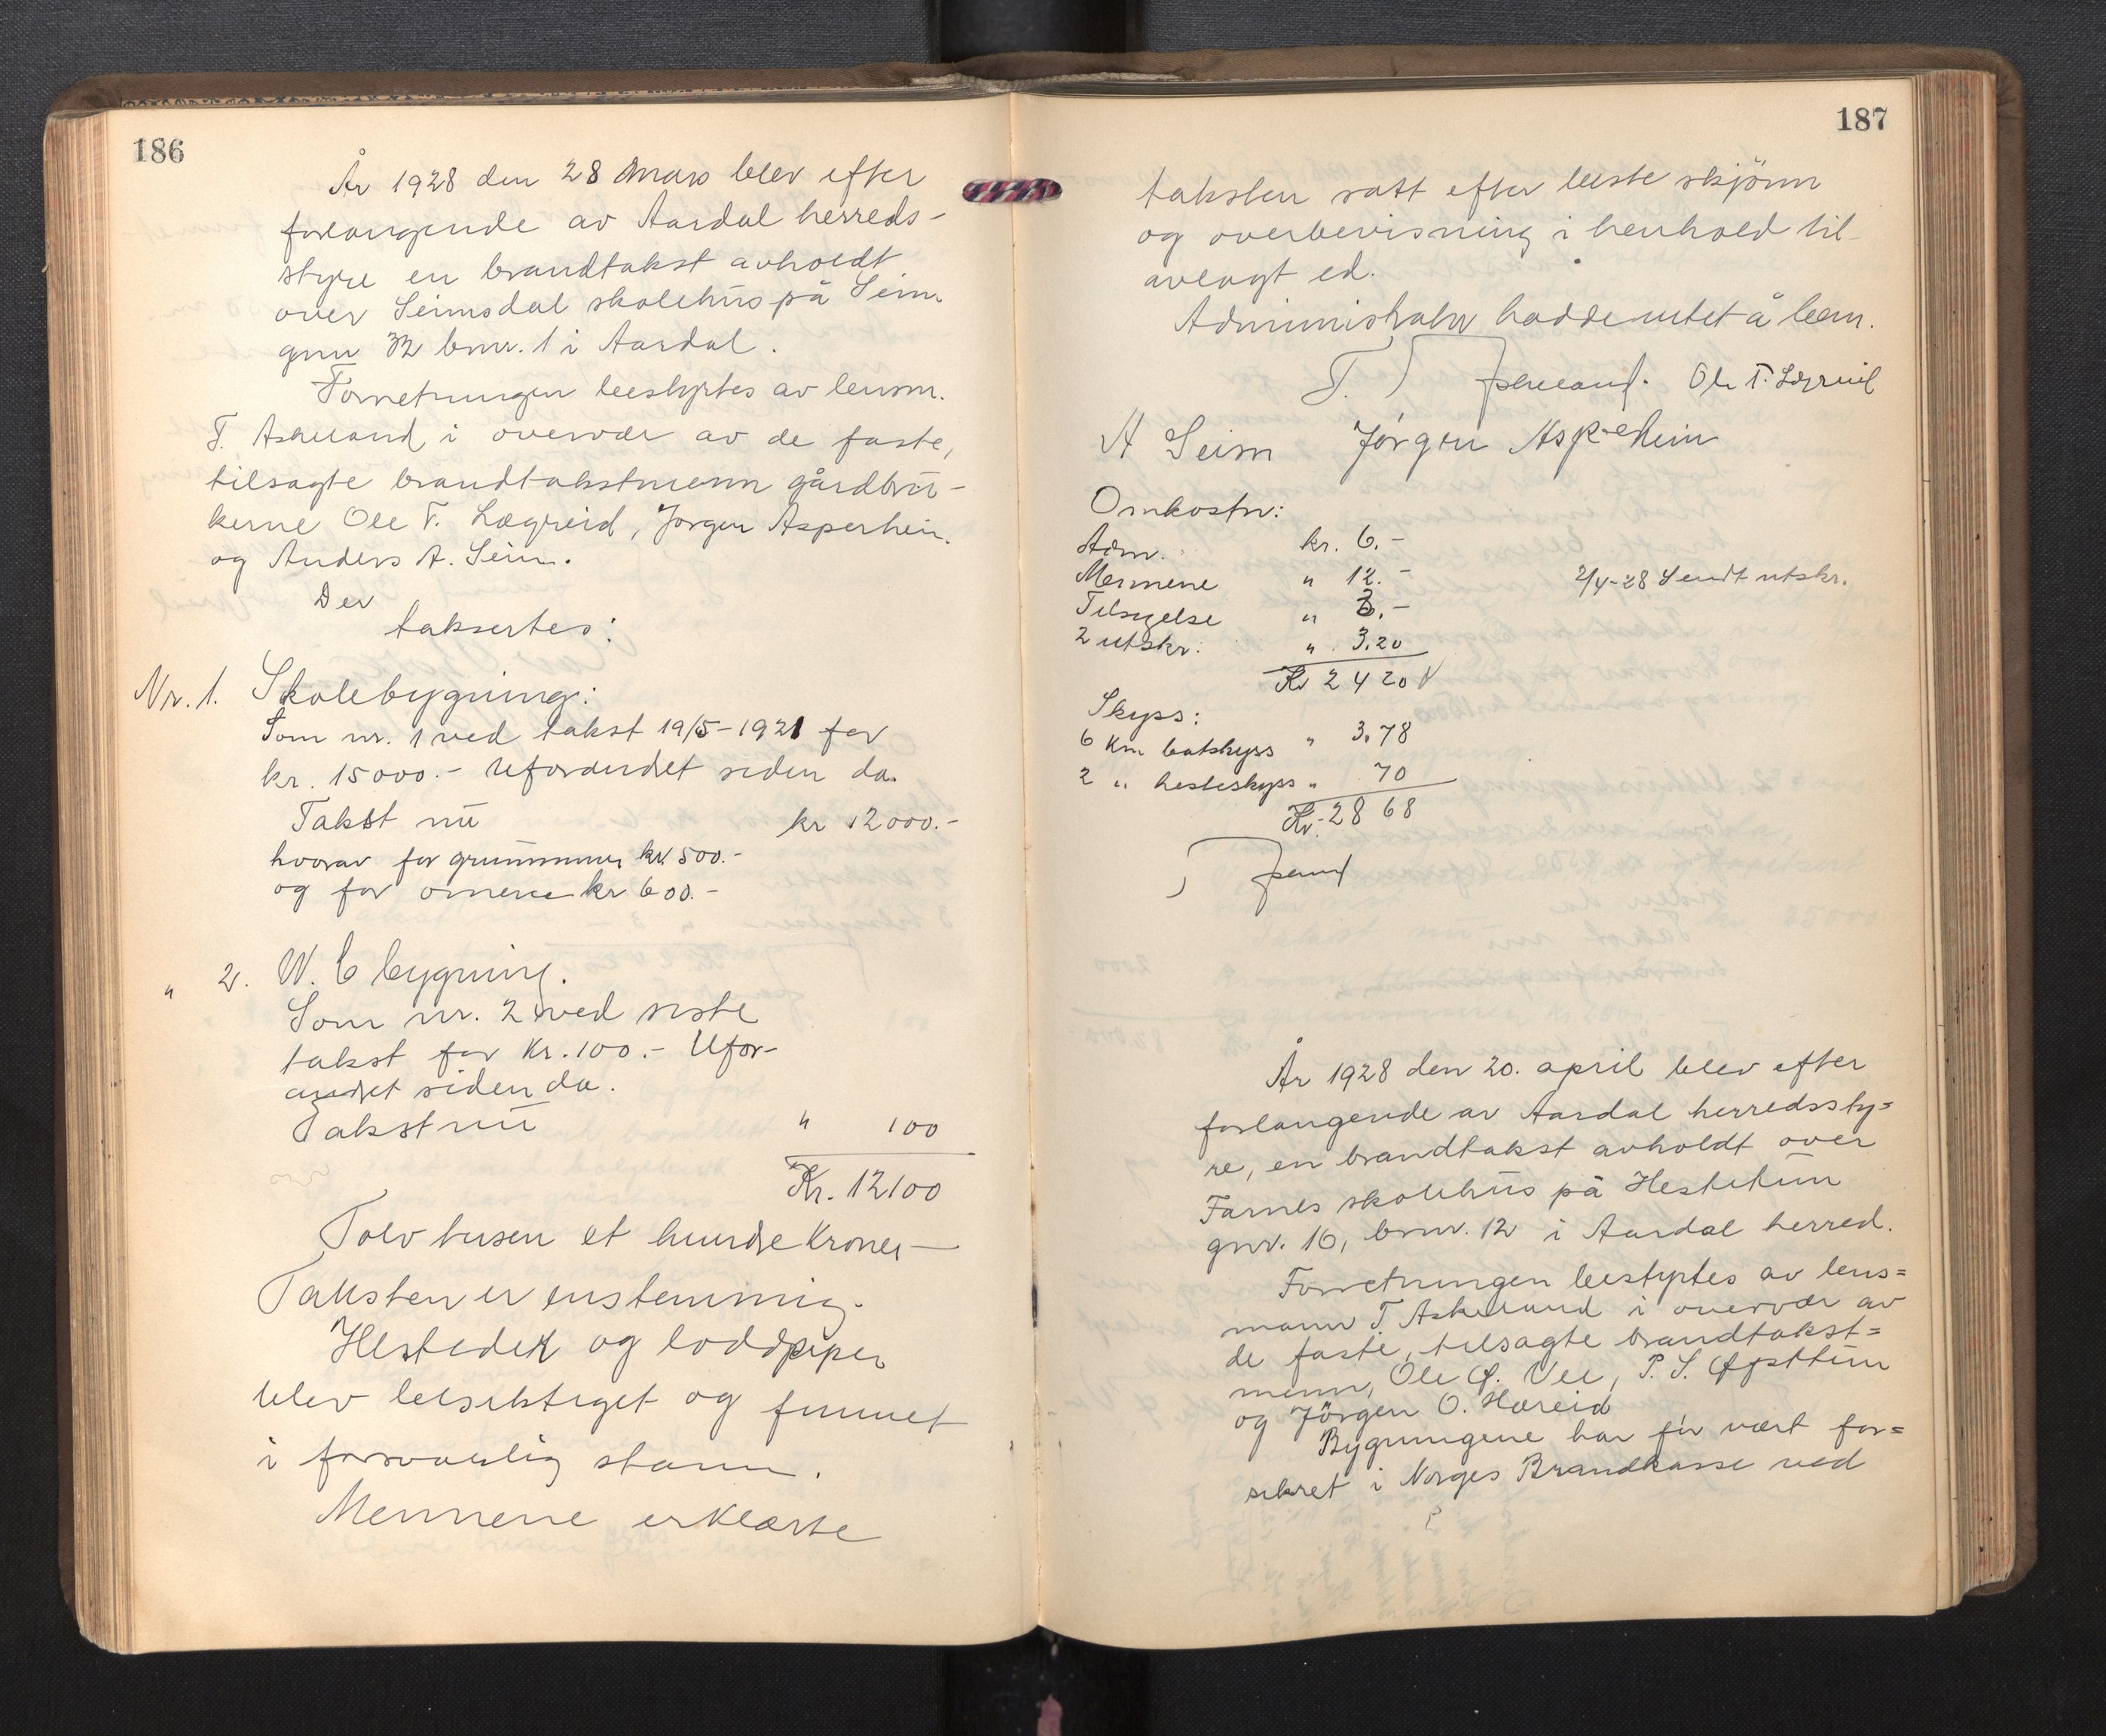 186
År 1928 den 28 mars blev efter
forlangende av Aardal herreds-
styre en brandtakst avholdt
over Seimsdal skolehus på Seim
gnr 32 bnr. 1 i Aardal.
Forretningen bestyrtes av lensm.
T. Askeland i overvær av de faste,
tilsagte brandtakstmenn gårdbru-
kerne Ole T. Lægreid, Jørgen Asperheim
og Anders A. Seim.
Der
taksertes:
Nr. 1. Skolebygning:
Som nr. 1 ved takst 19/5-1921 for
kr. 15000.- Uforandret siden da.
Takst nu kr 12000.-
hvorav for grunnmur kr 500.-
og for ovnene kr 600.-
" 2. W.C bygning.
Som nr. 2 ved siste
takst for Kr. 100.- Ufor-
andret siden da.
Takst nu " 100
Kr. 12100
Tolv tusen et hundre Kroner-
Taksten er enstemmig.
Ildsteder og loddpiper
blev besiktiget og funnet
i forsvarlig stann.
Mennene erklærte
187
taksten satt efter beste skjønn
og overbevisning i henhold til
avlagt ed.
Administrator hadde intet å bem.
T. Askeland. Ole T. Lægreid
A Seim Jørgen Asperheim
Omkostn:
Adm. kr. 6.-
Mennene " 12.-
Tilsigelse " 3.-
2 utskr: " 3.20
Kr 24 20
2/4-28 Sendt utskr.
Skyss:
6 Km båtskyss " 3.78
2 " hesteskyss " 70
Kr. 28 68
År 1928 den 20. april blev efter
forlangende av Aardal herredssty=
re, en brandtakst avholdt over
Farnes skolehus på Hestetun
gnr. 16, bnr. 12 i Aardal herred.
Forretningen bestyrtes av lens=
mann T. Askeland i overvær av
de faste, tilsagte brandtakst=
menn, Ole Ø. Vee, P. S. Øpsttun
og Jørgen O. Hæreid
Bygningene har før vært for=
sikret i Norges Brandkasse ved